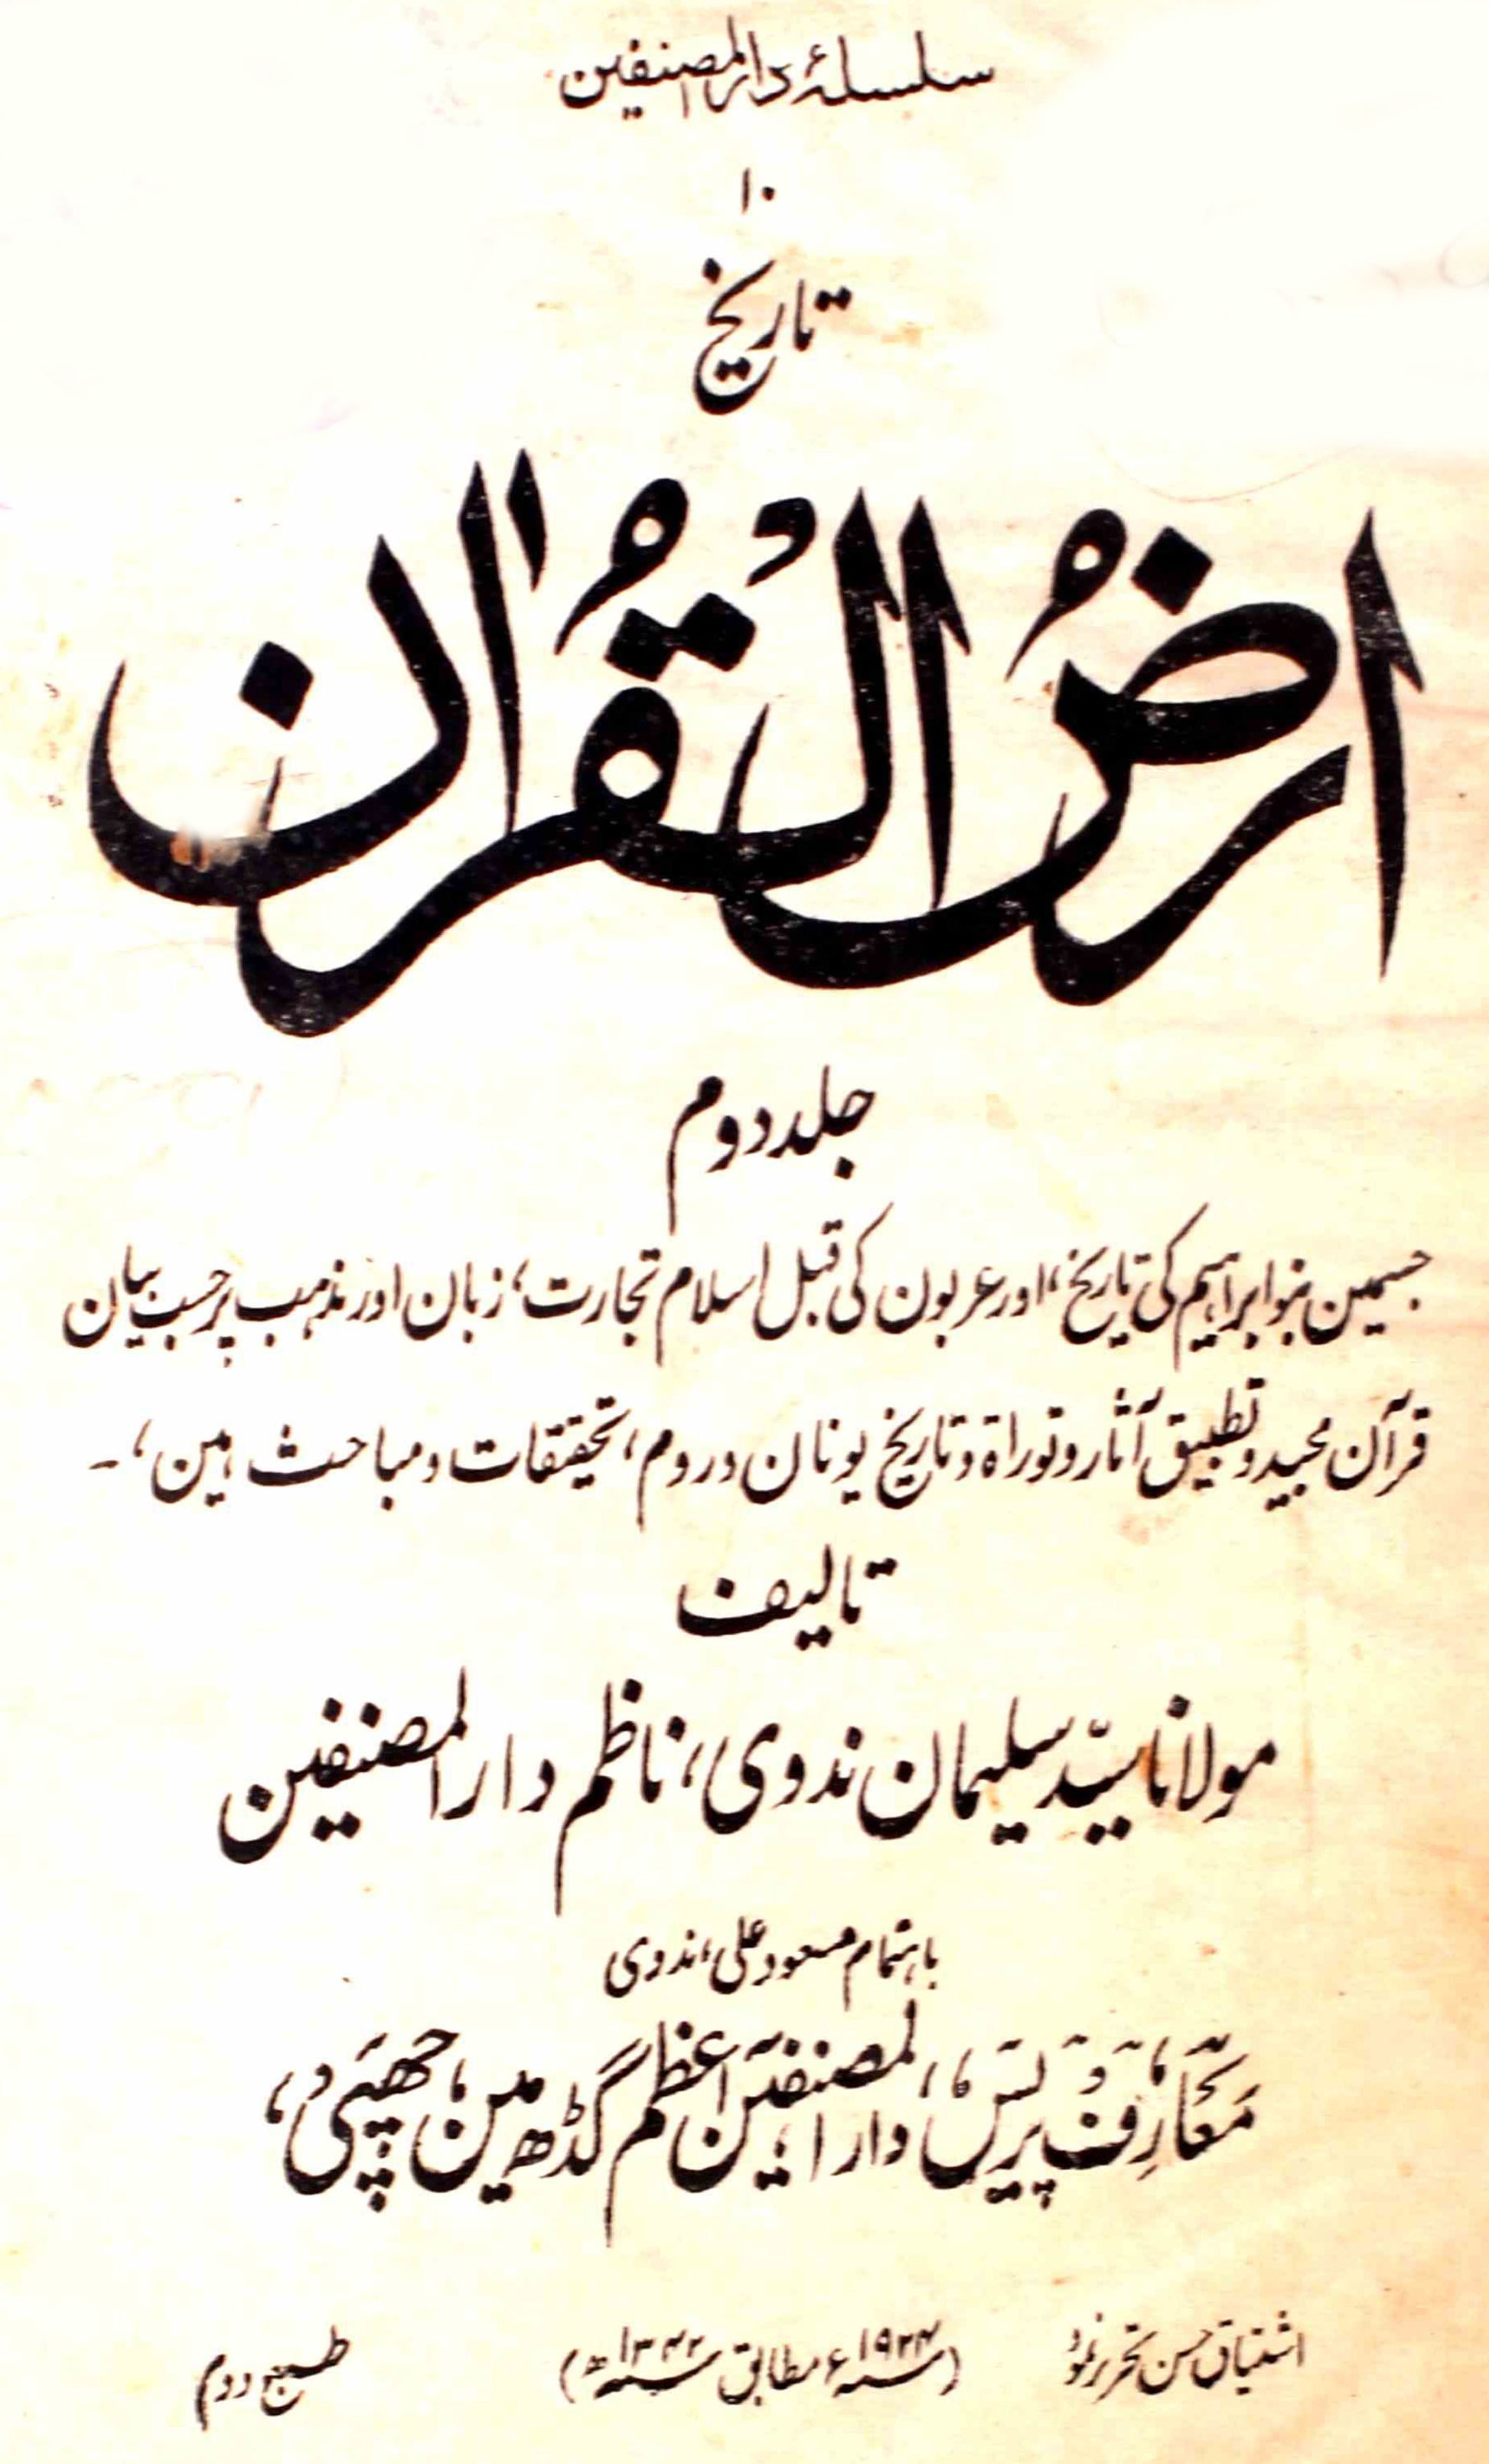 سلسلۂ دار المصنفین
۱۰
تاریخ
ارضُ القُرآن
جلد دوم
جسمین بنو ابراہیم کی تاریخ، اور عربون کی قبل اسلام تجارت، زبان اور مذہب پر حسب بیان
قرآن مجید و تطبیق آثار و توراۃ و تاریخ یونان و روم، تحقیقات و مباحث ہین، ۔
تالیف
مولانا سیّد سلیمان ندوی، ناظم دار المصنفین
باہتمام مسعود علی، ندوی
معارف پریس، دار المصنفین اعظم گڈھ مین چھپی،
اشتیاق حسن تحریر نمود
(سنہ ۱۹۲۴ء مطابق سنہ ۱۳۴۲ھ)
طبع دوم